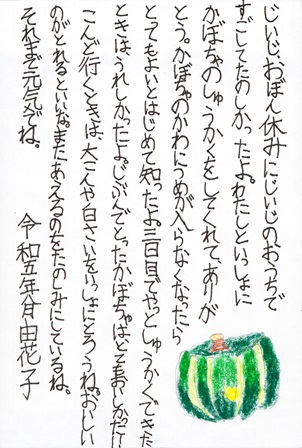 じいじ、おぼん休みにじいじのおうちで
すごしてたのしかったよ。わたしといっしょに
かぼちゃのしゅうかくをしてくれて、ありが
とう。かぼちゃのかわにつめが入らなくなったら
とってもよいとはじめて知ったよ。三日目でやっとしゅうかくできた
ときは、うれしかったよ。じぶんでとったかぼちゃはとてもおいしかった！
こんど行くときは、大こんや白さいをいっしょにとろうね。おいしい
のがとれるといいな。またあえるのをたのしみにしているね。
それまで元気でね。
令和五年 月 由花子